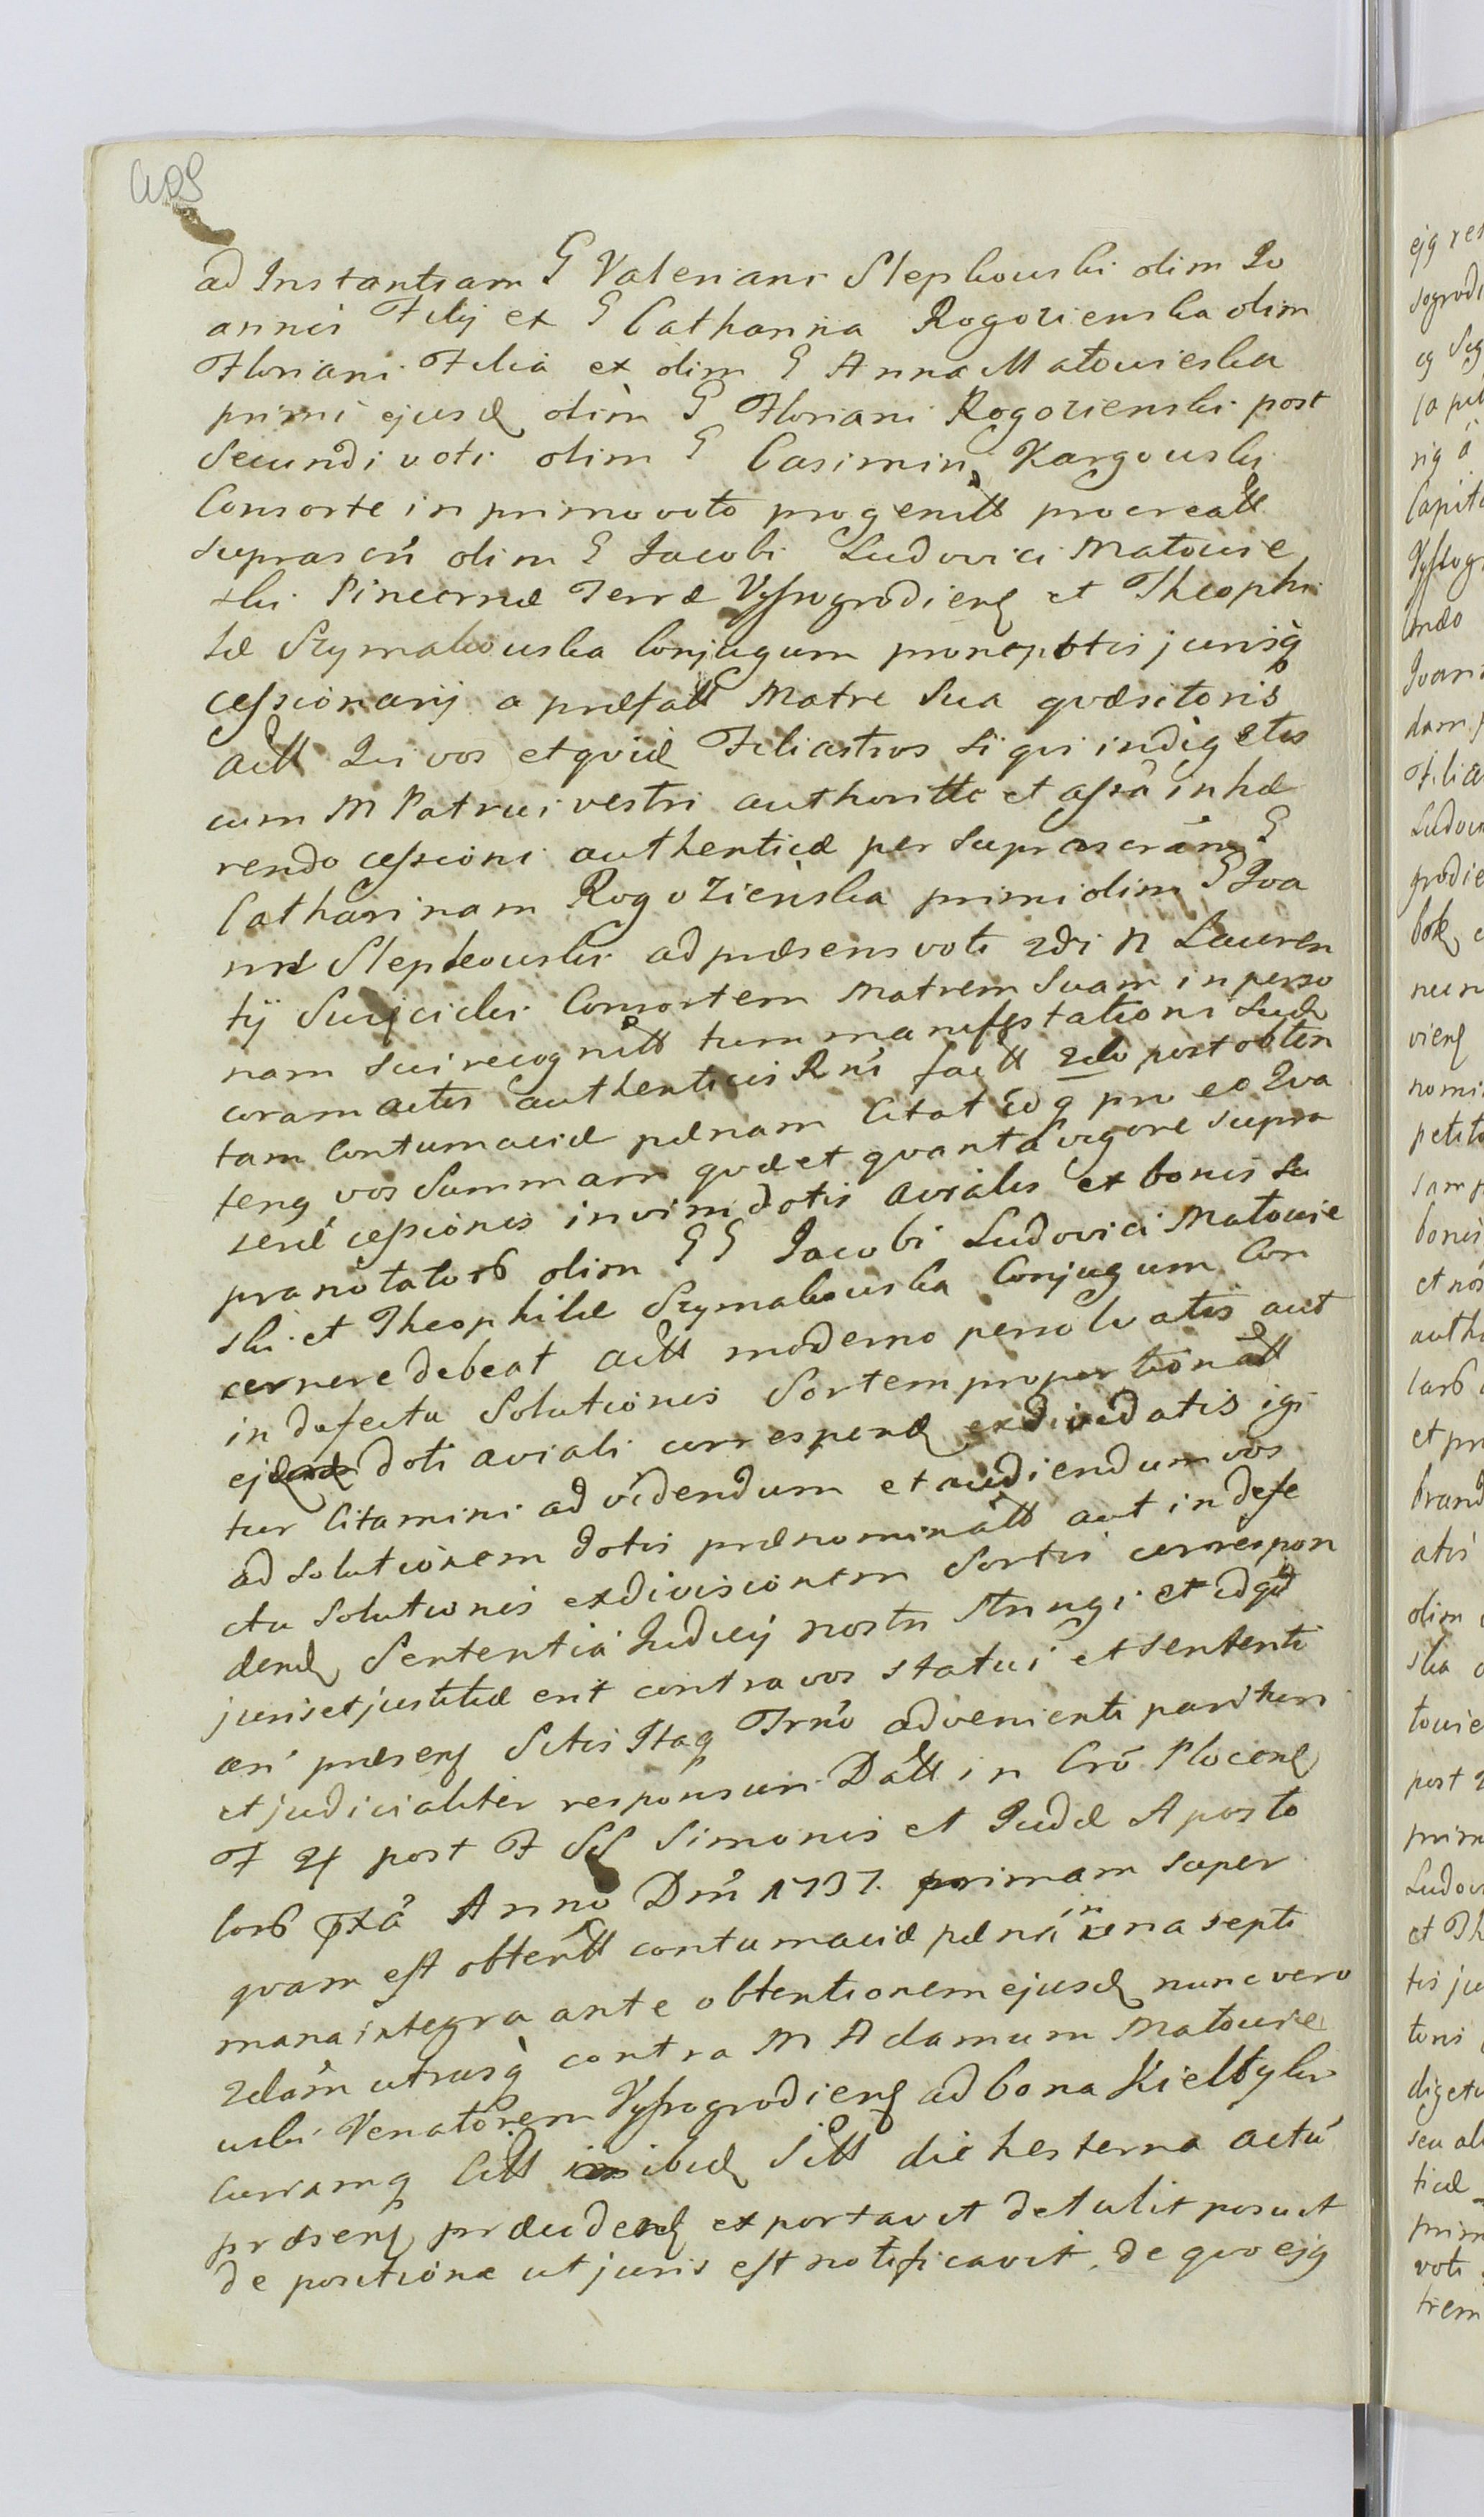 ad Instantiam G Valeriani Slepkowski olim Jo
annis Filij ex G Catharina Rogozienska olim
Floriani Filia ex olim G Anna Matowieska
primi ejusd olim G Floriani Rogozienski post
Secundi voti olim G Casimiri Kargowski
Consorte in primo voto progenitt procreatt
suprascri olim G Jacobi Ludovici Matowie
ski Pincernæ Terræ Vyssogrodiens et Theophi
læ Szymakowska Conjugum pronepotis jurisq
cessionarij a præfatt Matre Sua qvæsitoris
actt Qui vos etqvid Filiastros si qvi indigetis
cum M Patrui vestri authoritte et assã inhæ
rendo cessioni authenticæ per suprascrãm G
Catharinam Rogozieńska primi olim G Joa
nnis Slepkowski ad præsens voti 2di N Lauren
tij Consortem Matrem Suam in perso
nam sui recognitt tum manifestationi Sub
coram actis authenticis Rni factt 2do post obten
tam Contumaciæ pænam Citat idq pro eo Qva
tenq vos Summam qvæ et qvanta vigore supra
seriæ cessionis invim dotis avialis ex bonis Su
pranotatorb olim GG Jacobi Ludovici Matowie
ski et Theophilæ Szymakowska Conjugum Con
cernere debeat actt moderno persolvatis aut
in defectu Solutionis Sortem proportionatt
doti aviali correspond exdividatis igi
tur Citamini ad videndum et audiendum vos
ad solutionem dotis prænominatt aut in defe
ctu solutionis exdivisionem Sortis correspon
dend Sententia Judicij nostri stringi et idqd
juris et justitiæ erit contra vos statui et sententi
ari præsens Sitis Itaq Trno advenienti parituri
et judicialiter responsuri Datt in Cro Plocens
F 4 post F SS Simonis et Judæ Aposto
lorb Anno Dni 1737. primam super
qvam est obtentt contumaciæ pæna in una septi
mana integra ante obtentionem ejusd nunc vero
2dam utrasq contra M Adamum Matowie
wski Venatorem Vyssogrodiens ad bona Kiełtyki
Curiamq Citt ibid Sitt die hesterna actũ
præsens præcedend exportavit detulit posuit
de positione ut juris est notificavit. de qvo ejq